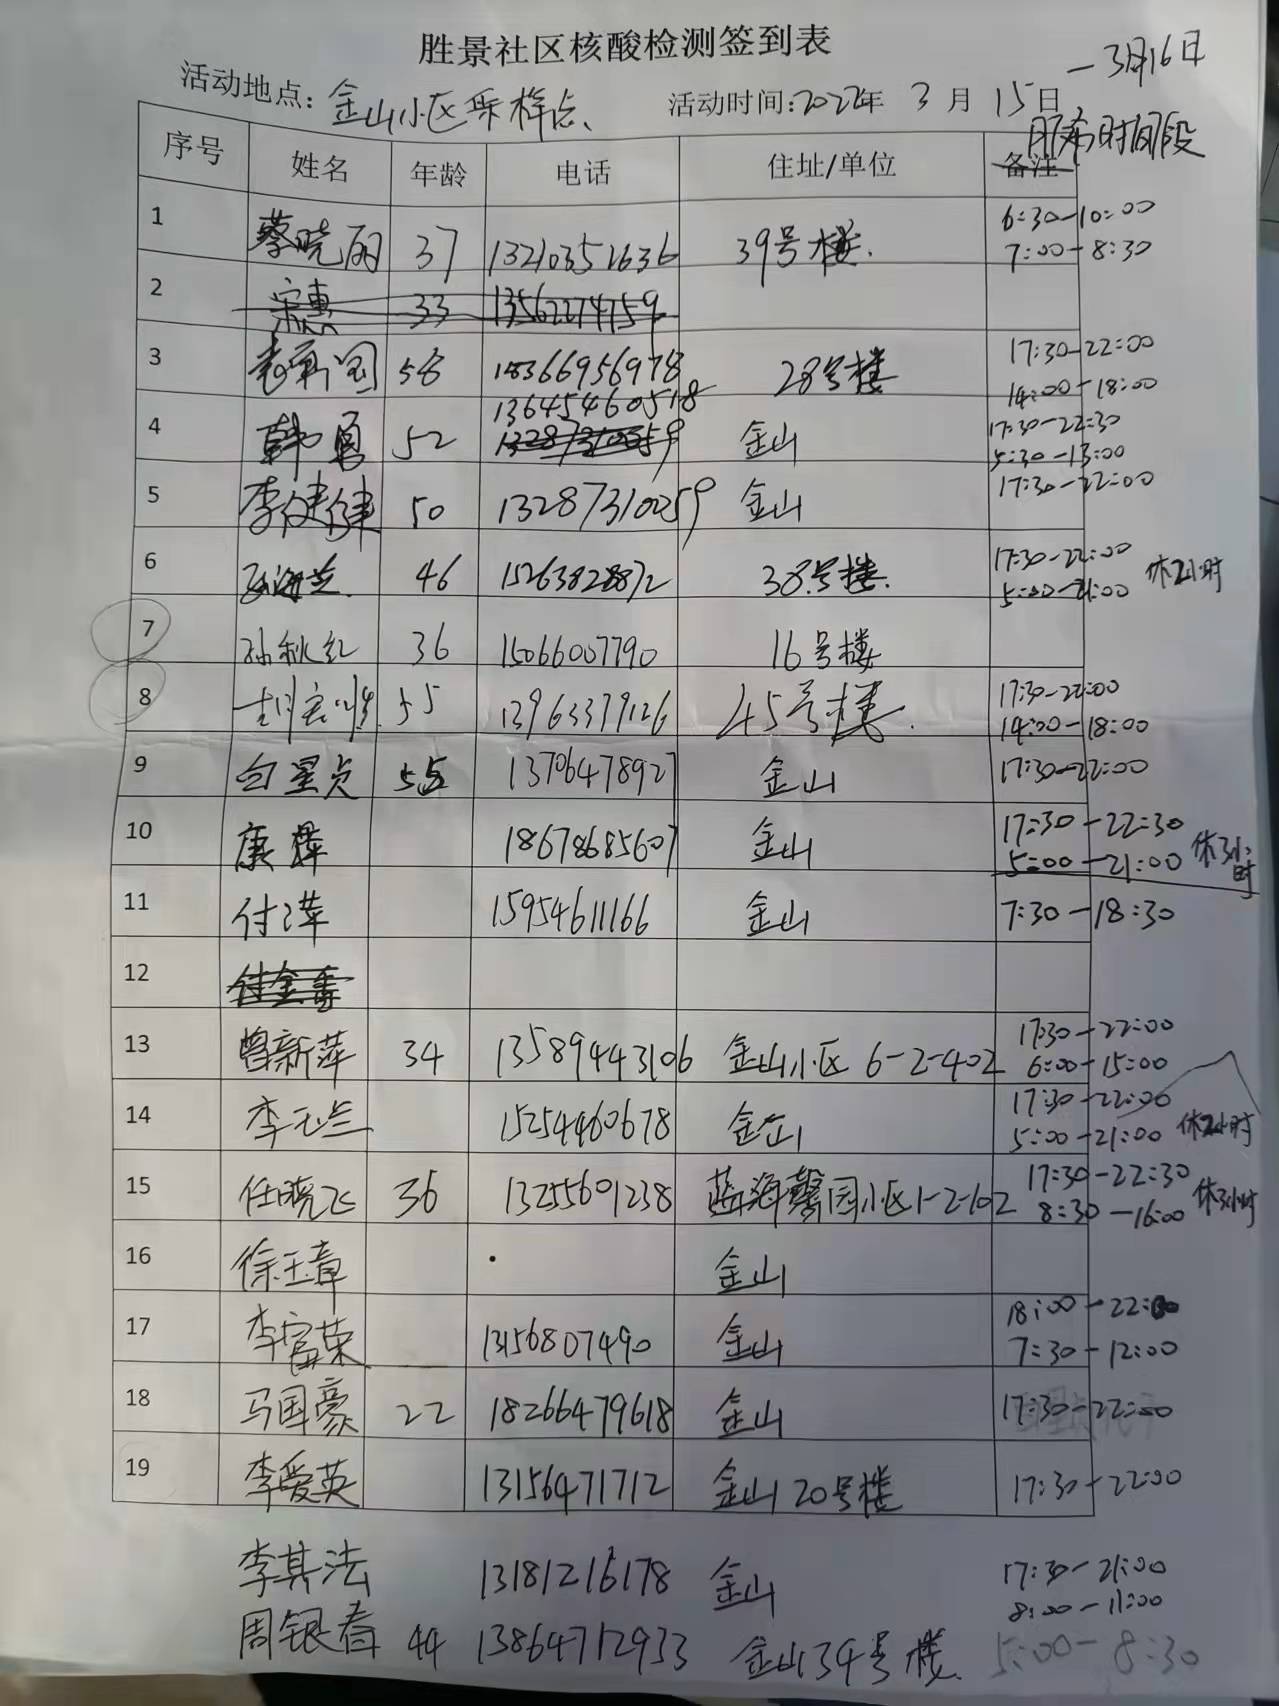 胜景社区核酸检测签到表
活动地点：金山小区采样点 活动时间：2022年 3 月 15日 —3月16日
序号 姓名 年龄 电话 住址/单位 备注 服务时间段
1 蔡晓丽 37 13210351636 39号楼. 6:30—10:00
7:00—8:30
2 宋惠 33 13562274759
3 58 15366956978 28号楼 17:30—22:00
14:00—18:00
4 韩勇 52 13645460518 金山 17:30—22:30
13287310059 5:30—13:00
5 李健健 50 13287310059 金山 17:30—22:00
6 孙海兰. 46 15263828872 38号楼. 17:30—22:00
5:00—21:00 休2小时
7 孙秋红 36 15066007790 16号楼
8 55 13963379126 45号楼. 17:30—22:00
14:00—18:00
9 白星贞 55 13706478927 金山 17:30—22:00
10 康萍 18678685607 金山 17:30—22:30
5:00—21:00 休3小时
11 付萍 15954611166 金山 7:30—18:30
12 付金香
13 曾新萍 34 13589443106 金山小区 6-2-402 17:30—22:00
6:00—15:00
14 李元兰 15254460678 金山 17:30—22:00
5:00—21:00 休2小时
15 任晓飞 36 13255601238 蓝海馨园小区1-2-102 17:30—22:30
8:30—16:00 休3小时
16 徐玉章 金山
17 李富荣 13156807490 金山 18:00—22:00
7:30—12:00
18 马国豪 22 18266479618 金山 17:30—22:00
19 李爱英 13156471712 金山20号楼 17:30—22:00
李其法 13181216178 金山 17:30—21:00
8:00—11:00
周银春 44 13864712933 金山34号楼. 5:00—8:30